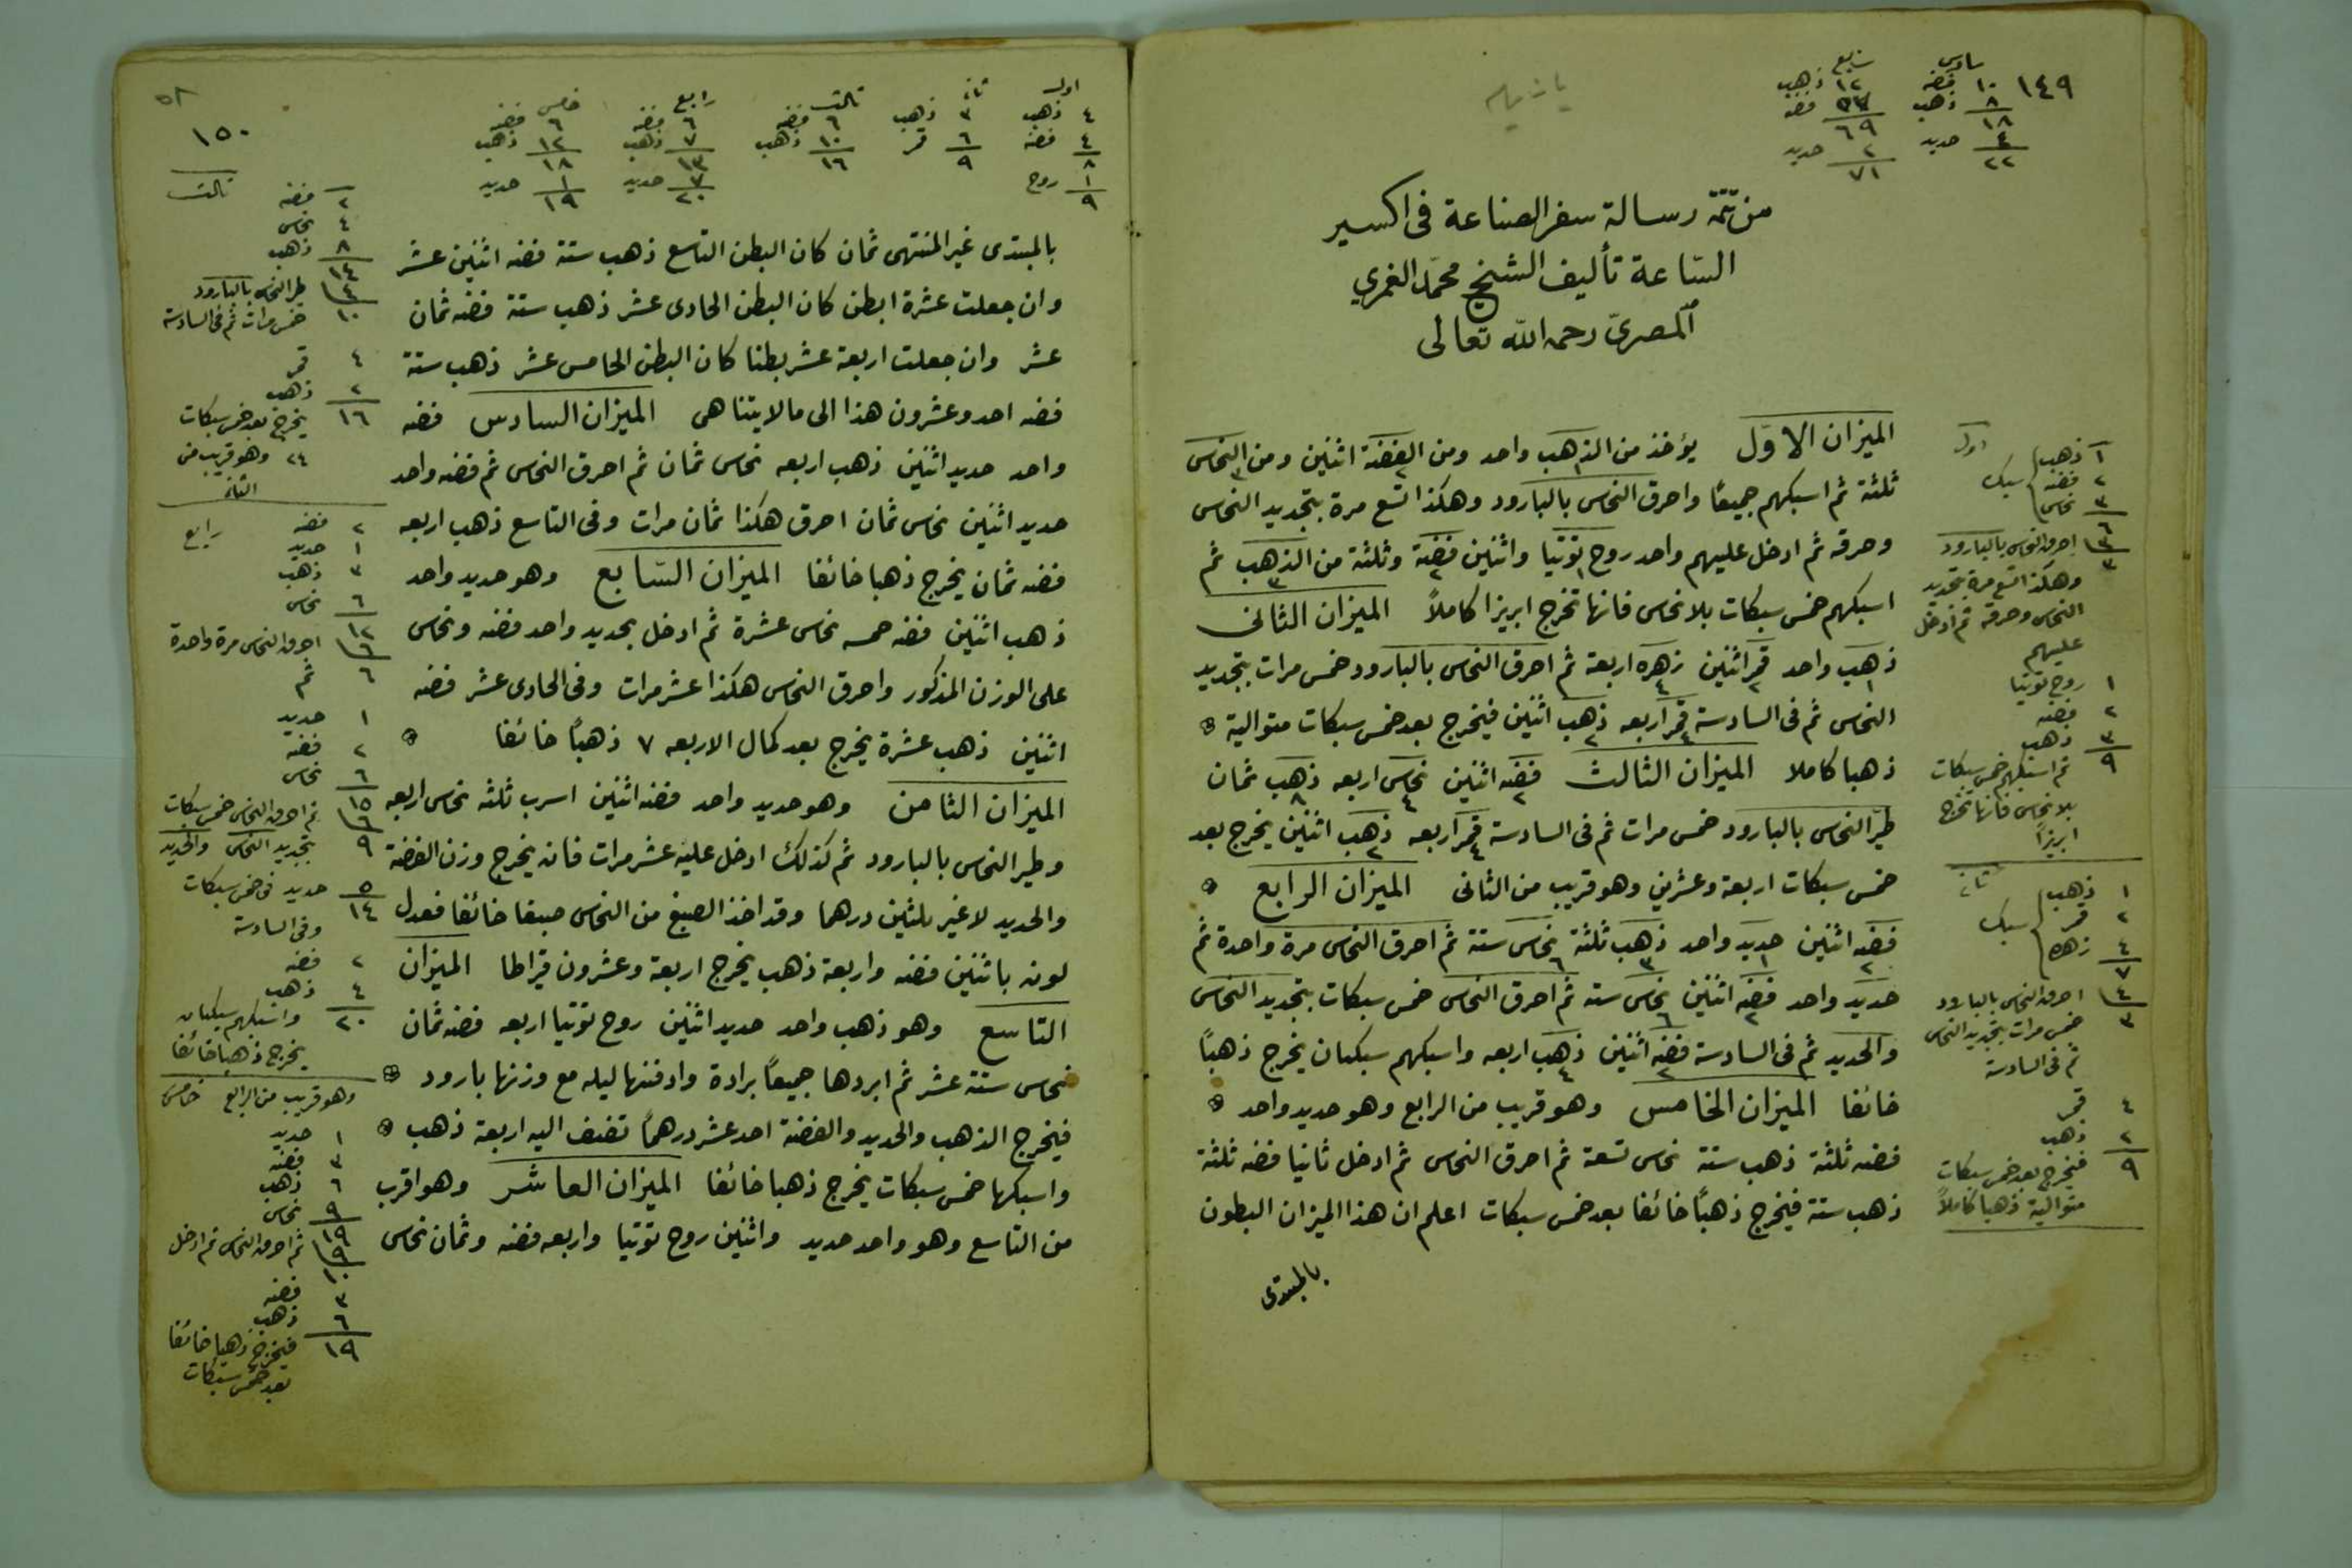 ١٤٩
سادس
١٠ فضه
٨ ذهب
١٨
٤ حديد
٢٢
سابع
١٢ ذهب
٥٧ فضه
٦٩
٢ حديد
٧١
من تتمّة رسالة سفر الصناعة فى اكسير
السّاعة تأليف الشيخ محمّد الغمري
المصريّ رحمه الله تعالى
الميزان الاوّل يؤخذ من الذهب واحد ومن الفضّة اثنين ومن النحاس
ثلثة ثم اسبكهم جميعًا واحرق النحاس بالبارود وهكذا تسع مرة بتجديد النحاس
وحرقه ثم ادخل عليهم واحد روح توتيا واثنين فضّة وثلثة من الذهب ثم
اسبكهم خمس سبكات بلا نحاس فانها تخرج ابريزا كاملاً الميزان الثانى
ذهب واحد قمر اثنين زهره اربعة ثم احرق النحاس بالبارود خمس مرات بتجديد
النحاس ثم فى السادسة قمر اربعه ذهب اثنين فيخرج بعد خمس سبكات متوالية
ذهبا كاملا الميزان الثالث فضّه اثنين نحاس اربعه ذهب ثمان
طيّر النحاس بالبارود خمس مرات ثم فى السادسة قمر اربعه ذهب اثنين يخرج بعد
خمس سبكات اربعة وعشرين وهو قريب من الثانى الميزان الرابع
فضّه اثنين حديد واحد ذهب ثلثة نحاس ستة ثم احرق النحاس مرة واحدة ثم
حديد واحد فضّه اثنين نحاس سته ثم احرق النحاس خمس سبكات بتجديد النحاس
والحديد ثم فى السادسة فضّه اثنين ذهب اربعه واسبكهم سبكتان يخرج ذهبًا
خائفا الميزان الخامس وهو قريب من الرابع وهو حديد واحد
فضه ثلثة ذهب ستة نحاس تسعة ثم احرق النحاس ثم ادخل ثانيا فضه ثلثة
ذهب ستة فيخرج ذهبًا خائفا بعد خمس سبكات اعلم ان هذا الميزان البطون
بالمبتدى
اول
١ ذهب
٢ فضه
٣ نحاس
سبك
٦
٣ احرق النحاس بالبارود
٣
وهكذا تسع مرة بتجديد
النحاس وحرقه ثم ادخل
عليهم
١ روح توتيا
٢ فضه
٣ ذهب
٩
ثم اسبكهم خمس سبكات
بلا نحاس فانها تخرج
ابريزاً
ثانى
١ ذهب
٢ قمر
٤ زهره
سبك
٧
٤ احرق النحاس بالبارود
٣
خمس مرات بتجديد النحاس
ثم فى السادسة
٤ قمر
٢ ذهب
٩
فيخرج بعد خمس سبكات
متوالية ذهبا كاملاً
١٥٠
اول
٤ ذهب
٤ فضه
٨
١ روح
٩
ثانى
٣ ذهب
٦ قمر
٩
ثالث
٦ فضه
١٠ ذهب
١٦
رابع
٦ فضه
٧ ذهب
١٣
٧ حديد
٢٠
خامس
٦ فضه
١٢ ذهب
١٨
١ حديد
١٩
بالمبتدى غير المنتهى ثمان كان البطن التاسع ذهب ستة فضه اثنين عشر
وان جعلت عشرة ابطن كان البطن الحادى عشر ذهب ستة فضه ثمان
عشر وان جعلت اربعة عشر بطنا كان البطن الخامس عشر ذهب ستة
فضه احد وعشرون هذا الى مالا يتناهى الميزان السادس فضه
واحد حديد اثنين ذهب اربعه نحاس ثمان ثم احرق النحاس ثم فضه واحد
حديد اثنين نحاس ثمان احرق هكذا ثمان مرات وفى التاسع ذهب اربعه
فضه ثمان يخرج ذهبا خائفا الميزان السّابع وهو حديد واحد
ذهب اثنين فضه خمسه نحاس عشرة ثم ادخل بحديد واحد فضه ونحاس
على الوزن المذكور واحرق النحاس هكذا عشر مرات وفى الحادى عشر فضه
اثنين ذهب عشرة يخرج بعد كمال الاربعه ٧ ذهبًا خائفا
الميزان الثامن وهو حديد واحد فضه اثنين اسرب ثلثه نحاس اربعه
وطير النحاس بالبارود ثم كذلك ادخل عليه عشر مرات فانه يخرج وزن الفضة
والحديد لا غير ثلثين درهما وقد اخذ الصبغ من النحاس صبغا خائفا فعدل
لونه باثنين فضه واربعة ذهب يخرج اربعة وعشرون قيراطا الميزان
التاسع وهو ذهب واحد حديد اثنين روح توتيا اربعه فضه ثمان
نحاس ستة عشر ثم ابردها جميعًا برادة وادفنها ليله مع وزنها بارود
فيخرج الذهب والحديد والفضة احد عشر درهمًا تضيف اليه اربعة ذهب
واسبكها خمس سبكات يخرج ذهبا خائفا الميزان العاشر وهو اقرب
من التاسع وهو واحد حديد واثنين روح توتيا واربعه فضه وثمان نحاس
ثالث
٢ فضه
٤ نحاس
٨ ذهب
١٤
٤ طير النحاس بالبارود
١٠ خمس مرات ثم فى السادسة
٤ قمر
٢ ذهب
١٦ يخرج بعد خمس سبكات
٢٤ وهو قريب من
الثانى
رابع
٢ فضه
١ حديد
٣ ذهب
٦ نحاس
١٢
٦ احرق النحاس مرة واحدة
٦ ثم
١ حديد
٢ فضه
٦ نحاس
١٥
٦ ثم احرق النحاس خمس سبكات
٩ بتجديد النحاس والحديد
٥ حديد فى خمس سبكات
١٤
وفى السادسة
٢ فضه
٤ ذهب
٢٠ واسبكهم سبكتان
يخرج ذهبا خائفا
وهو قريب من الرابع خامس
١ حديد
٣ فضه
٦ ذهب
٩ نحاس
١٩
٩ ثم احرق النحاس ثم ادخل
١٠
٣ فضه
٦ ذهب
١٩ فيخرج ذهبا خائفا
بعد خمس سبكات